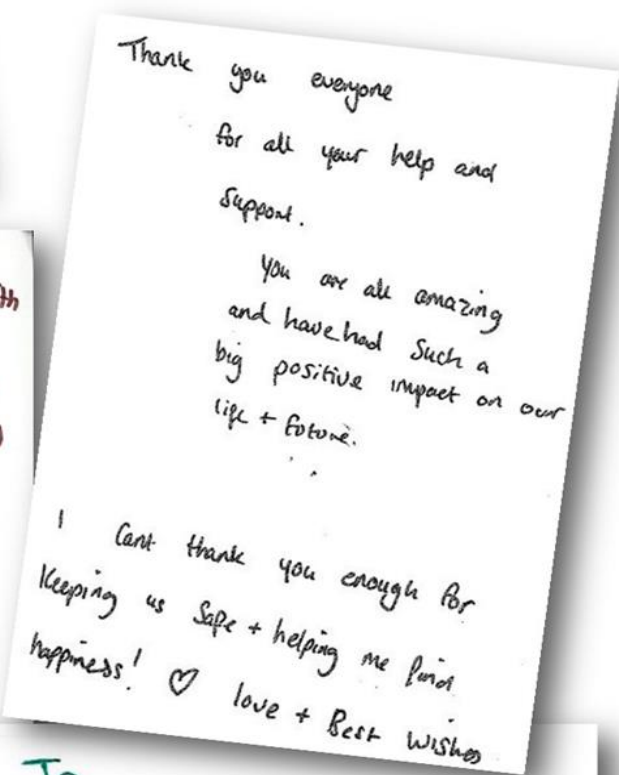 Thank you everyone
for all your help and
support.
You are all amazing
and have had such a
big positive impact on our
life + future.
I cant thank you enough for
Keeping us safe + helping me find
happiness! ♡ love + Best wishes
th
To